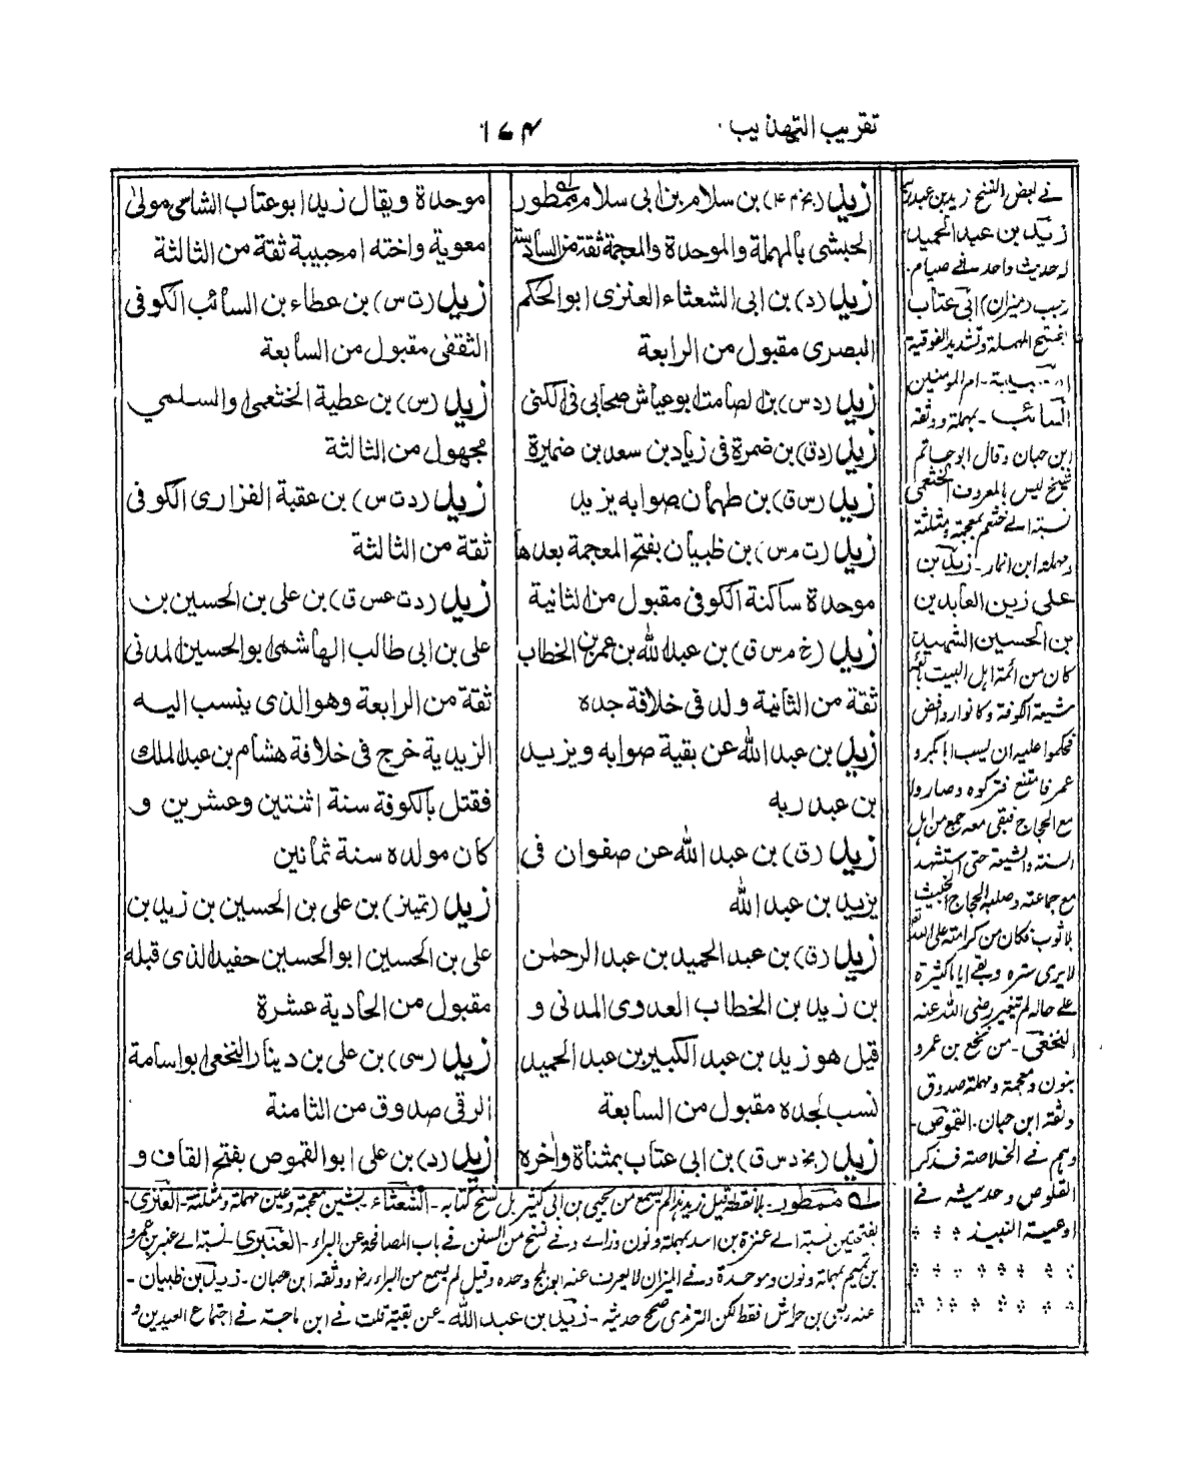 تقريب التهذيب
۱۷۴
زيد (بخ م ۴) بن سلام بن ابى سلام ممطور
الحبشى بالمهملة والموحدة والمعجمة ثقة من السادسة
زيد (د) بن ابى الشعثاء العنزى ابو الحكم
البصرى مقبول من الرابعة
زيد (د س) بن الصامت ابو عياش صحابى فى الكنى
زيد (د ق) بن ضمرة فى زياد بن سعد بن ضميرة
زيد (س ق) بن طهمان صوابه يزيد
زيد (ت م س) بن ظبيان بفتح المعجمة بعدها
موحدة ساكنة الكوفى مقبول من الثانية
زيد (خ م س ق) بن عبد الله بن عمر بن الخطاب
ثقة من الثانية ولد فى خلافة جده
زيد بن عبد الله عن بقية صوابه ويزيد
بن عبد ربه
زيد (ق) بن عبد الله عن صفوان فى
يزيد بن عبد الله
زيد (ق) بن عبد الحميد بن عبد الرحمٰن
بن زيد بن الخطاب العدوى المدنى و
قيل هو زيد بن عبد الكبير بن عبد الحميد
نسب لجده مقبول من السابعة
زيد (بخ د س ق) بن ابى عتاب بمثناة واٰخره
موحدة ويقال زيد ابو عتاب الشامى مولى
معوية واخته ام حبيبة ثقة من الثالثة
زيد (ت س) بن عطاء بن السائب الكوفى
الثقفى مقبول من السابعة
زيد (س) بن عطية الخثعمى او السلمى
مجهول من الثالثة
زيد (د ت س) بن عقبة الفزارى الكوفى
ثقة من الثالثة
زيد (د ت عس ق) بن على بن الحسين بن
على بن ابى طالب الهاشمى ابو الحسين المدنى
ثقة من الرابعة وهو الذى ينسب اليه
الزيدية خرج فى خلافة هشام بن عبد الملك
فقتل بالكوفة سنة اثنتين وعشرين و
كان مولده سنة ثمانين
زيد (تميز) بن على بن الحسين بن زيد بن
على بن الحسين ابو الحسين حفيد الذى قبله
مقبول من الحادية عشرة
زيد (سى) بن على بن دينار النخعى ابو اسامة
الرقى صدوق من الثامنة
زيد (د) بن على ابو القموص بفتح القاف و
فے بعض النسخ زيد بن عبد ربه
زيد بن عبد الحميد
له حديث واحد فے صيام
رجب (ميزان) ابى عتاب
بفتح المهملة وتشديد الفوقية
ام حبيبة - ام المومنين
السائب - بمهملة ووثقه
ابن حبان وقال ابو حاتم
شيخ ليس بالمعروف الخثعمى
نسبة الے خثعم بمعجمة ومثلثة
ومهملة ابن انمار - زيد بن
على زين العابدين
بن الحسين الشهيد
كان من ائمة اهل البيت
شيعة الكوفة وكانوا روافض
فحكموا عليه ان يسب ابا بكر و
عمر فامتنع فتركوه وصاروا
مع الحجاج فبقى معه جمع من اهل
السنة والشيعة حتى استشهد
مع جماعته وصلبه الحجاج الخبيث
بلا ثوب فكان من كرامته على الله
لا يرى ستره وبقے اياما كثيرة
علے حاله لم تتغير رضى الله عنه
النخعى - من نخع بن عمرو
بنون ومعجمة ومهملة صدوق
وثقه ابن حبان - القموص -
وهم فے الخلاصة فذكر
القلوص وحديثه فے
اوعية النبيذ
له ممطور - بلا نقطة قيل زيد هذا لم يسمع من يحيى بن ابى كثير بل نسخ كتابه - الشعثاء - بشين معجمة وعين مهملة ومثلثة - العنزى -
بفتحتين نسبة الے عنزة بن اسد بمهملة ونون وزاے وفے نسخ من السنن فے باب المصافحة عن البراء - العنبرى - نسبة الے عنبر بن عمرو
بن تميم بمهملة ونون وموحدة وفے الميزان لا يعرف عنه ابو بلج وحده وقيل لم يسمع من البراء رض ووثقه ابن حبان - زيد بن ظبيان -
عنه ربعى بن حراش فقط لكن الترمذى صحح حديثه - زيد بن عبد الله - عن بقية قلت فے ابن ماجة فے اجتماع العيدين و